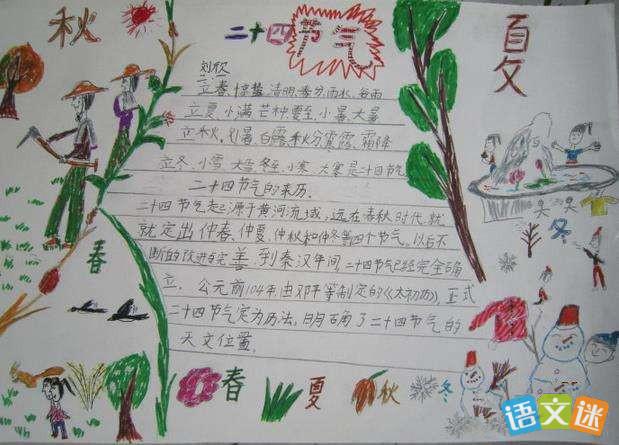 秋
二十四节气
夏
刘欣
立春惊蛰清明春分雨水谷雨
立夏小满芒种夏至小暑大暑
立秋、处暑白露秋分寒露霜降
立冬小雪大雪冬至小寒大寒是二十四节气
二十四节气的来历.
二十四节气起源于黄河流域,远在春秋时代,就
就定出仲春、仲夏、仲秋和仲冬等四个节气。以后不
断的改进与完善到秦汉年间,二十四节气已经完全确
立。公元前104年,由邓平等制定的《太初历》,正式
二十四节气定为历法,明确了二十四节气的
天文位置。
春
冬
春
夏
秋
冬
语文迷